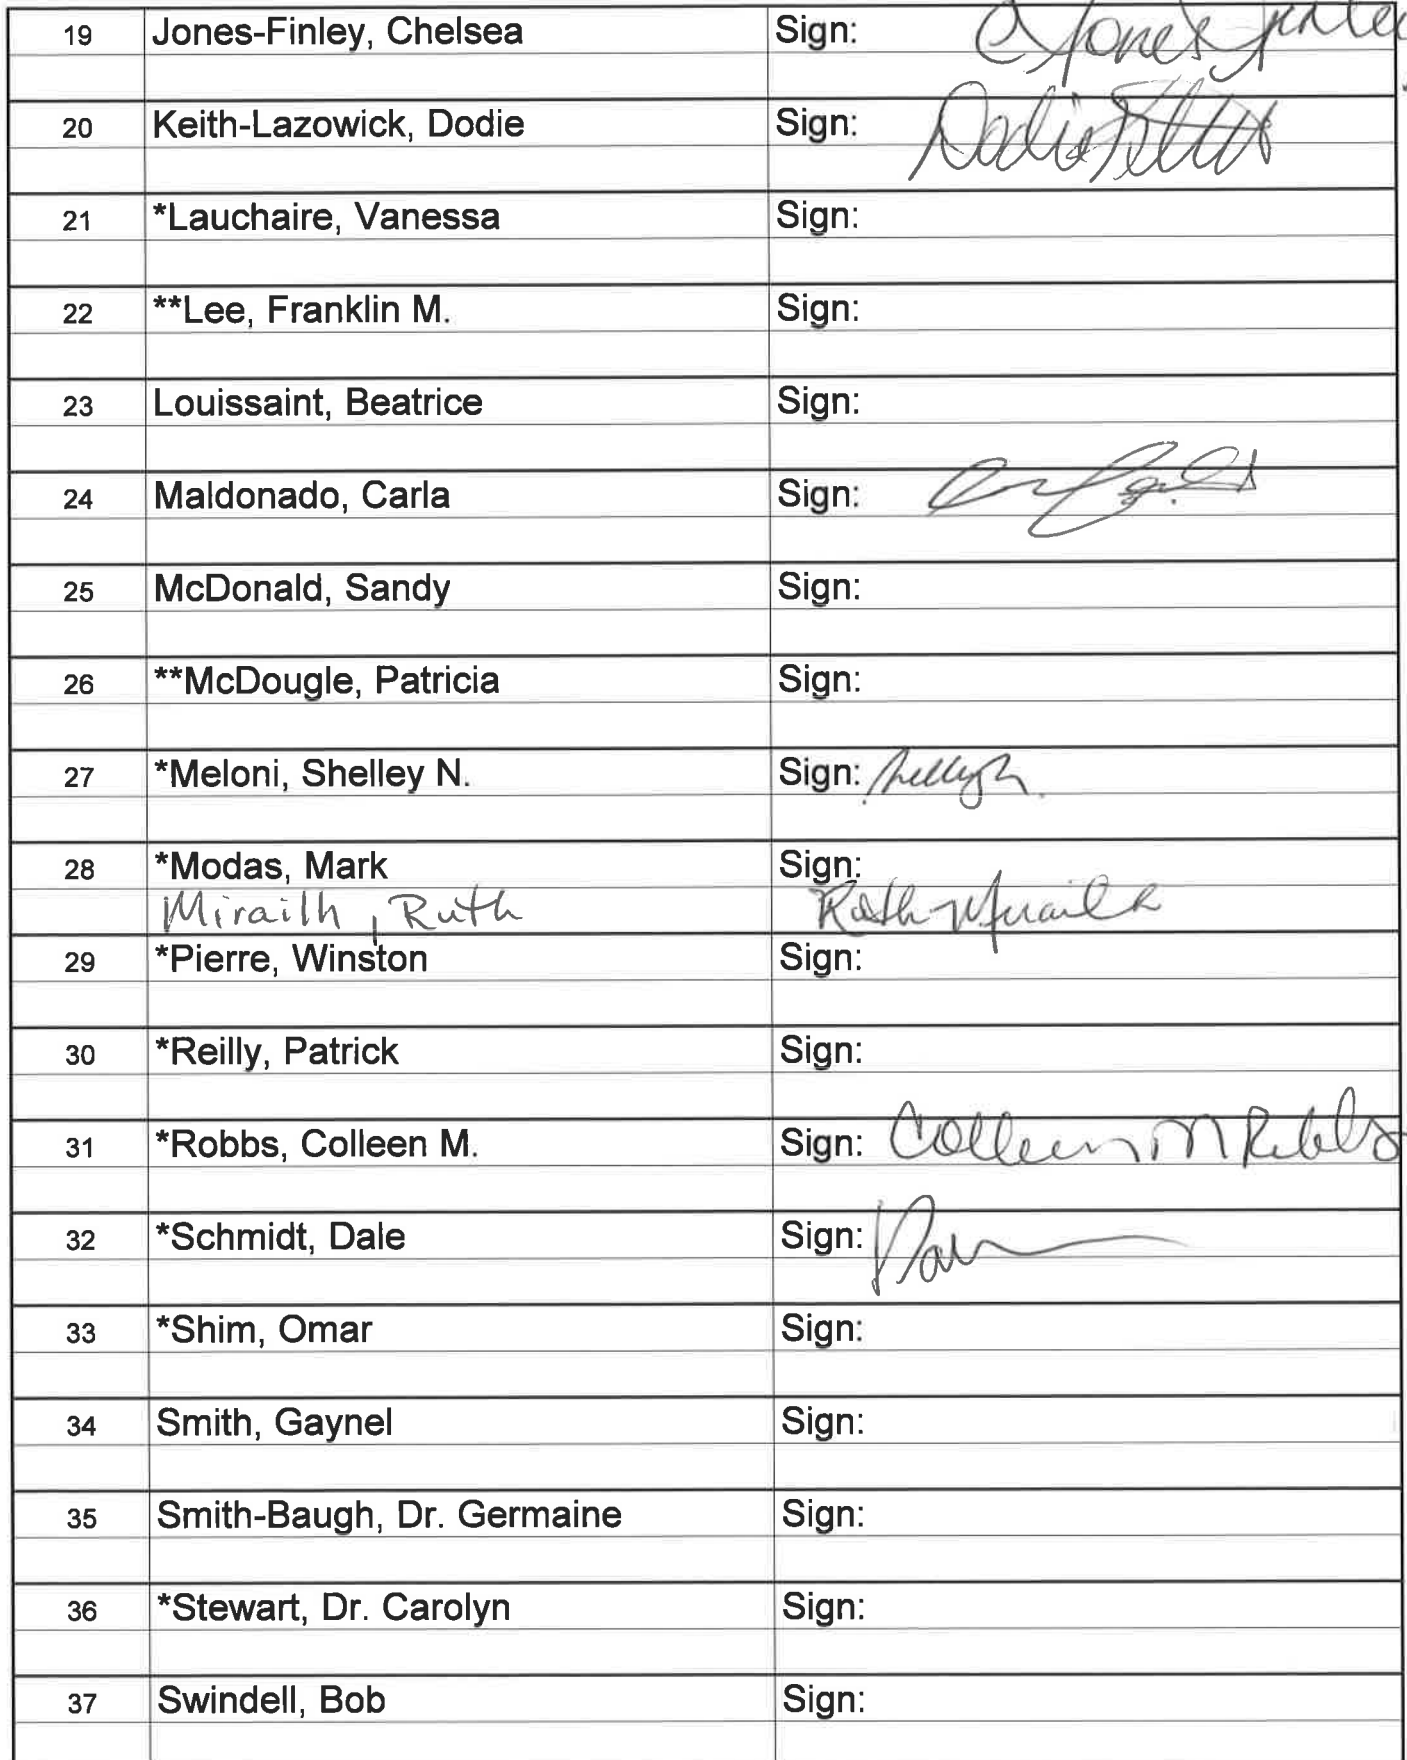 19 Jones-Finley, Chelsea Sign: C Jones Finley
20 Keith-Lazowick, Dodie Sign: Dodie
21 *Lauchaire, Vanessa Sign:
22 **Lee, Franklin M. Sign:
23 Louissaint, Beatrice Sign:
24 Maldonado, Carla Sign:
25 McDonald, Sandy Sign:
26 **McDougle, Patricia Sign:
27 *Meloni, Shelley N. Sign:
28 *Modas, Mark Sign:
Mirailh, Ruth Ruth Mirailh
29 *Pierre, Winston Sign:
30 *Reilly, Patrick Sign:
31 *Robbs, Colleen M. Sign: Colleen M Robbs
32 *Schmidt, Dale Sign:
33 *Shim, Omar Sign:
34 Smith, Gaynel Sign:
35 Smith-Baugh, Dr. Germaine Sign:
36 *Stewart, Dr. Carolyn Sign:
37 Swindell, Bob Sign: